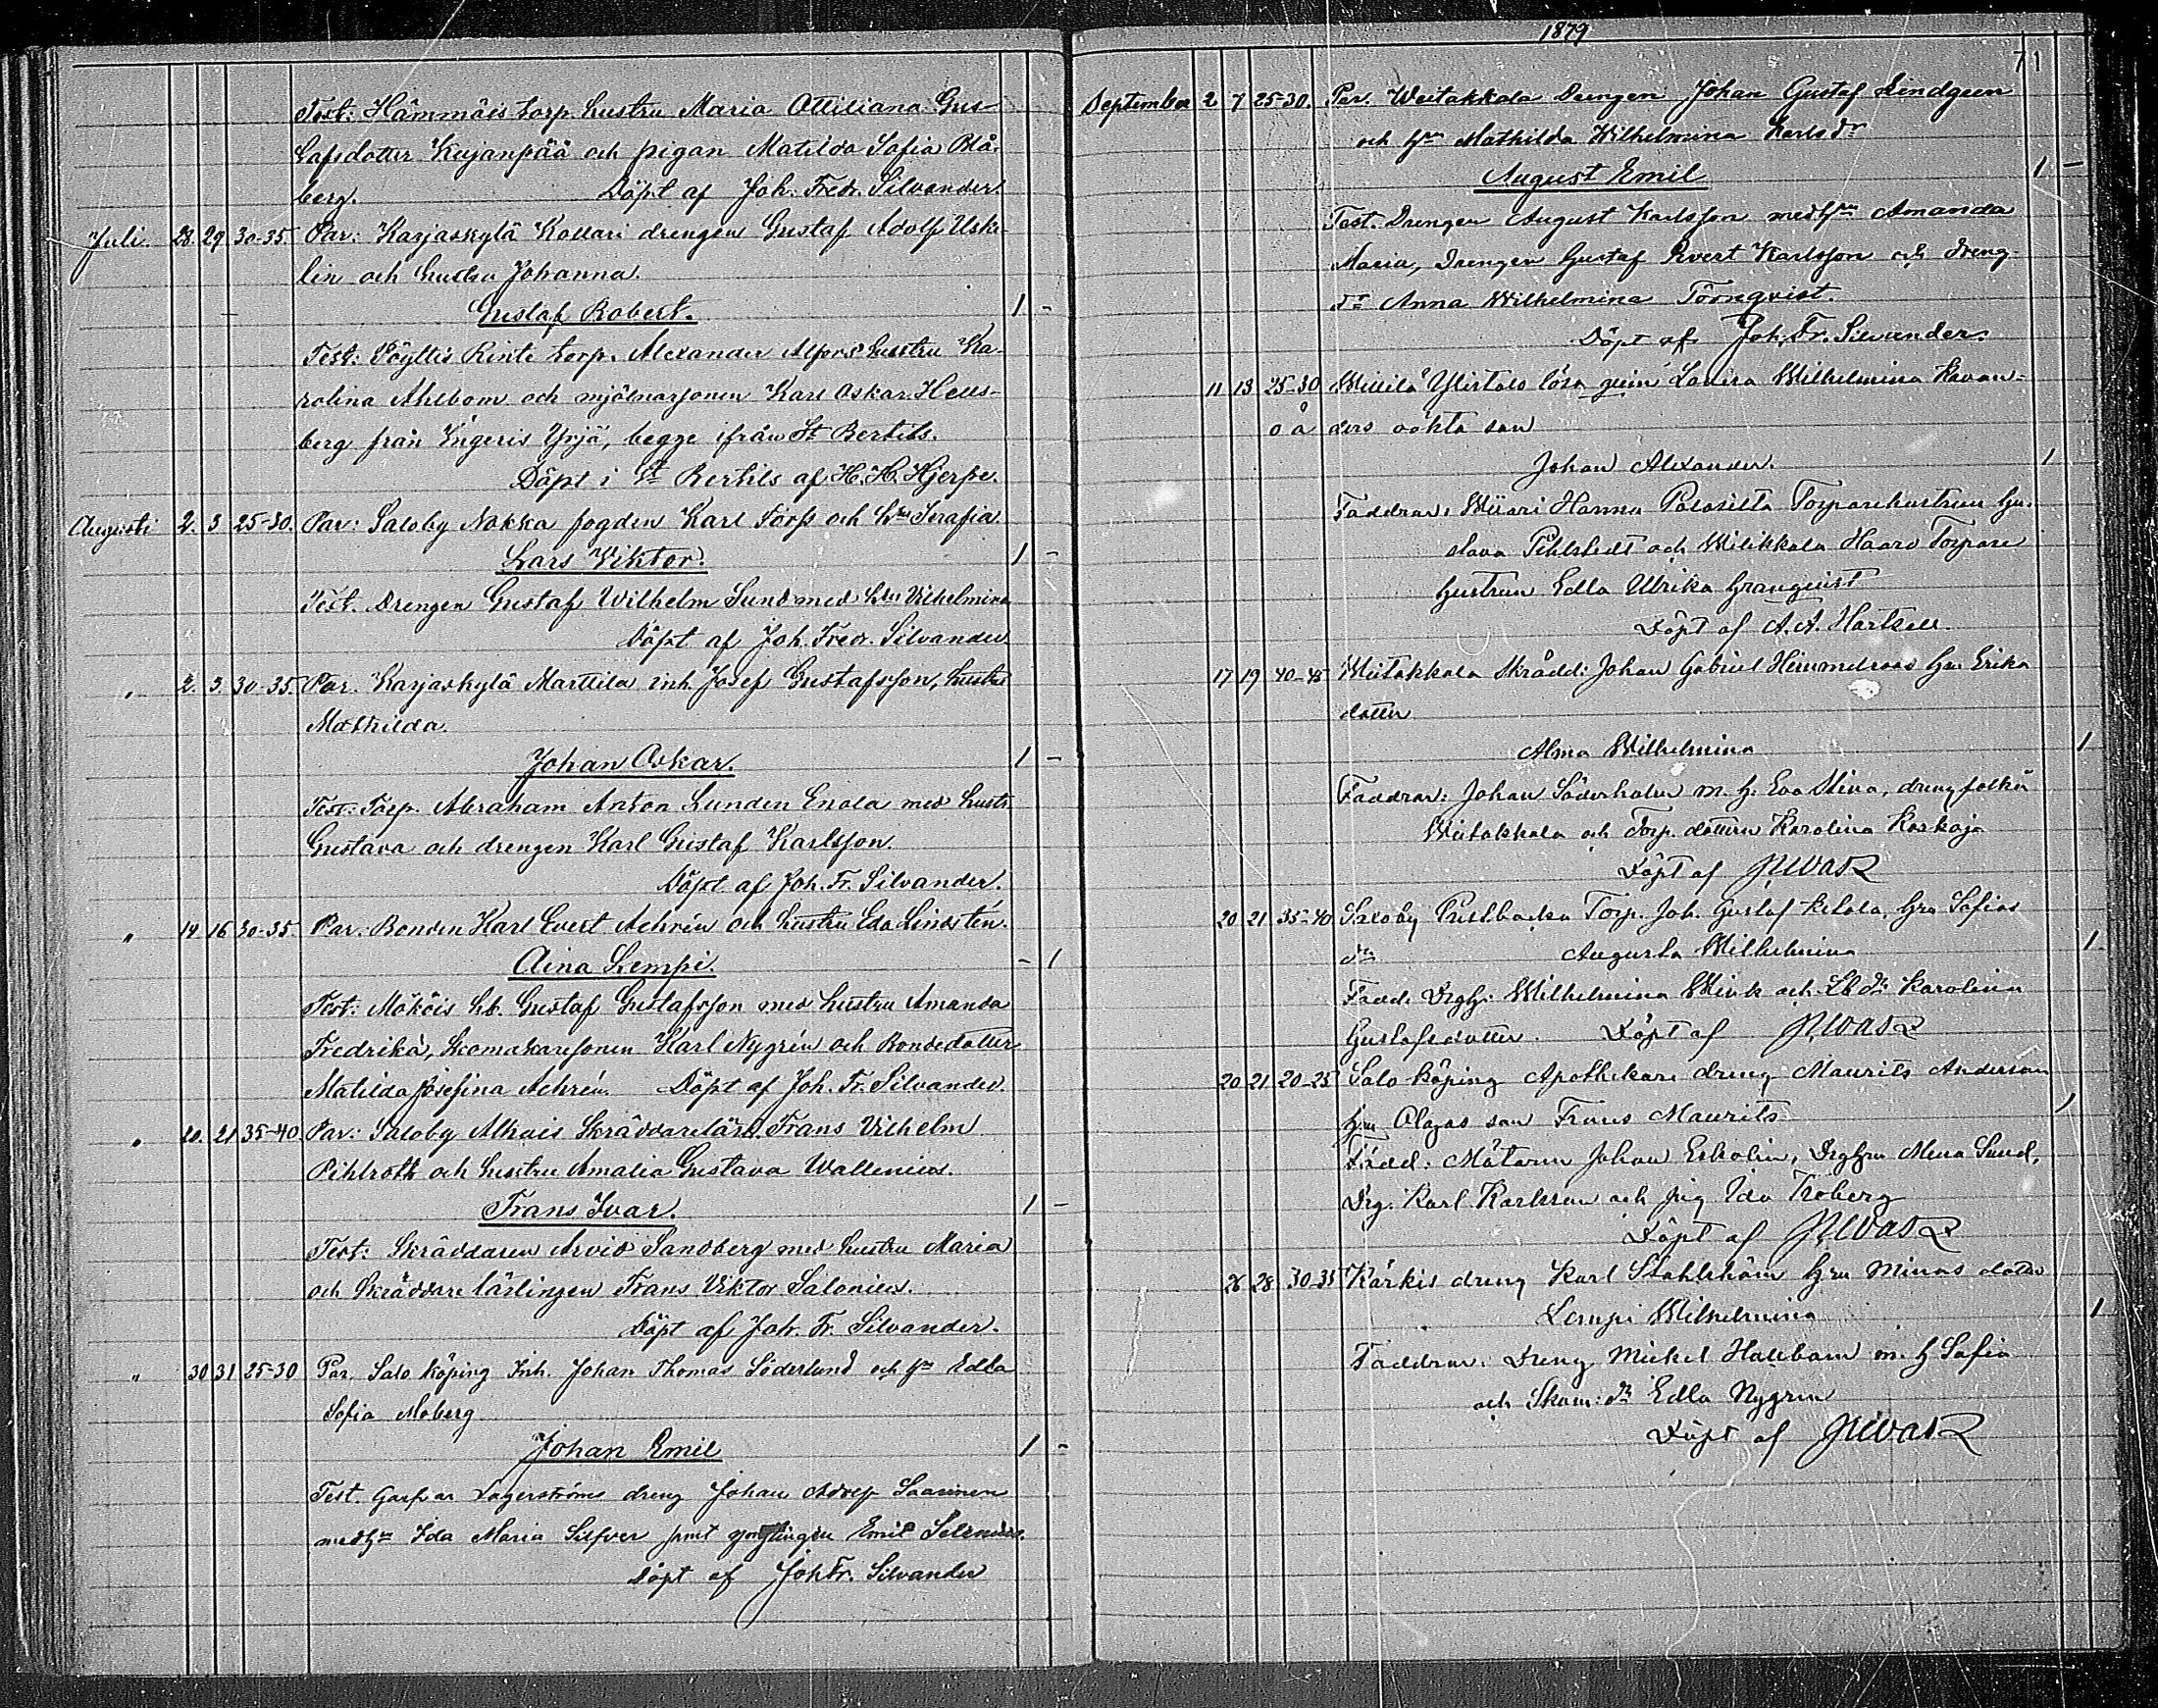 Test: Hämmäis torp. hustru Maria Ottiliana Gus-
tafsdotter Kujanpää och pigan Matilda Sofia Blå-
berg. Döpt af Joh. Fredr. Silvander.
Juli. 28. 29. 30-35. Par: Karjaskylä Kollari drengen Gustaf Adolf Uske-
lin och hustru Johanna.
Gustaf Robert. 1 -
Test: Pöyltis Rinte torp. Alexander Alfors hustru Ka-
rolina Ahlbom och mjölnarsonen Karl Oskar Hells-
berg från Ingeris Yrjä, begge ifrån St Bertils.
Döpt i St Bertils af H. H. Hjerpe.
Augusti 2. 3 25-30. Par: Saloby Nokka fogden Karl Forss och hu Serafia.
Lars Viktor. 1 -
Test. Drengen Gustaf Wilhelm Sund med hu Vilhelmina
Döpt af Joh. Fredr. Silvander
" 2. 3. 30-35. Par. Karjaskylä Marttila inh. Josef Gustafsson, hustru
Mathilda.
Johan Oskar. 1 -
Test: Torp. Abraham Anton Lunden Enola med hustr.
Gustava och drengen Karl Gustaf Karlsson.
Döpt af Joh. Fr. Silvander.
" 14 16 30-35. Par: Bonden Karl Evert Achrén och hustru Eda Lindstén.
Aina Lempi. - 1
Test: Mököis lb. Gustaf Gustafsson med hustru Amanda
Fredrika, Skomakaresonen Karl Nygrén och Bondedotter
Matilda Josefina Achrén. Döpt af Joh. Fr. Silvander.
" 20. 21 35-40 Par: Saloby Alhais Skräddarelärl. Frans Vilhelm
Pihlroth och hustru Amalia Gustava Wallenius.
Frans Ivar. 1 -
Test: Skräddaren Arvid Sandberg med hustru Maria
och Skräddare lärlingen Frans Viktor Salonius.
Döpt af Joh. Fr. Silvander.
" 30 31 25-30 Par. Salo köping Inh. Johan Thomas Söderlund och hu Edla
Sofia Moberg
Johan Emil 1 -
Test. Garfvar Lagerströms dreng Johan Adolf Saarinen
med hu Ida Maria Silfver samt ynglingen Emil Selenius.
Döpt af Joh Fr. Silvander
1879
71
September 2 7 25-30. Par. Weitakkala Drengen Johan Gustaf Lindgren
och hu Mathilda Wilhelmina Karlsdr
August Emil 1 -
Test. Drengen August Karlsson med hu Amanda
Maria, Drengen Gustaf Evert Karlsson och dreng-
dr Anna Wilhelmina Törnqvist.
Döpt af Joh. Fr. Silvander.
11 13 25-30 Yirtalo lösa Lovisa Wilhelmina Kavan-
o ä ders oäkta son
Johan Alexander. 1
Faddrar: Wiiari Hannu Palosilta Torparehustrun Gu-
stava Pihlstedt och Wilikkala Haaro Torpare
hustrun Edla Ulrika Granqvist
Döpt af A. A. Hartsell.
17 19 40-45 Wiitakkala Skrädd: Johan Gabriel hu Erika
dotter
Alma Wilhelmina 1
Faddrar: Johan Söderholm m. h. Eva Stina, drengfolk
Wiitakkala och Torp. dottern Karolina Koskoja
Döpt af
20 21 35-40 Saloby Torp. Joh. Gustaf Ketola, hu Sofias
dr Augusta Wilhelmina 1
Fadd. Wilhelmina Wink och Lb dr Karolina
Gustafsdotter. Döpt af
20 21 20-25 Salo köping Apothekare dreng Maurits Anderson
hu Olgas son Frans Maurits 1
Fadd: Mätaren Johan Eskolin, Drghu Mina Sund,
Drg. Karl Karlsson och pig Ida Troberg
Döpt af
26 28 30-35 Kärkis dreng Karl Stahlström hu Minas dotter
Lempi Wilhelmina 1
Faddrar: Dreng Mickel Hallbom m. h Sofia
och Skom: dr Edla Nygren
Döpt af